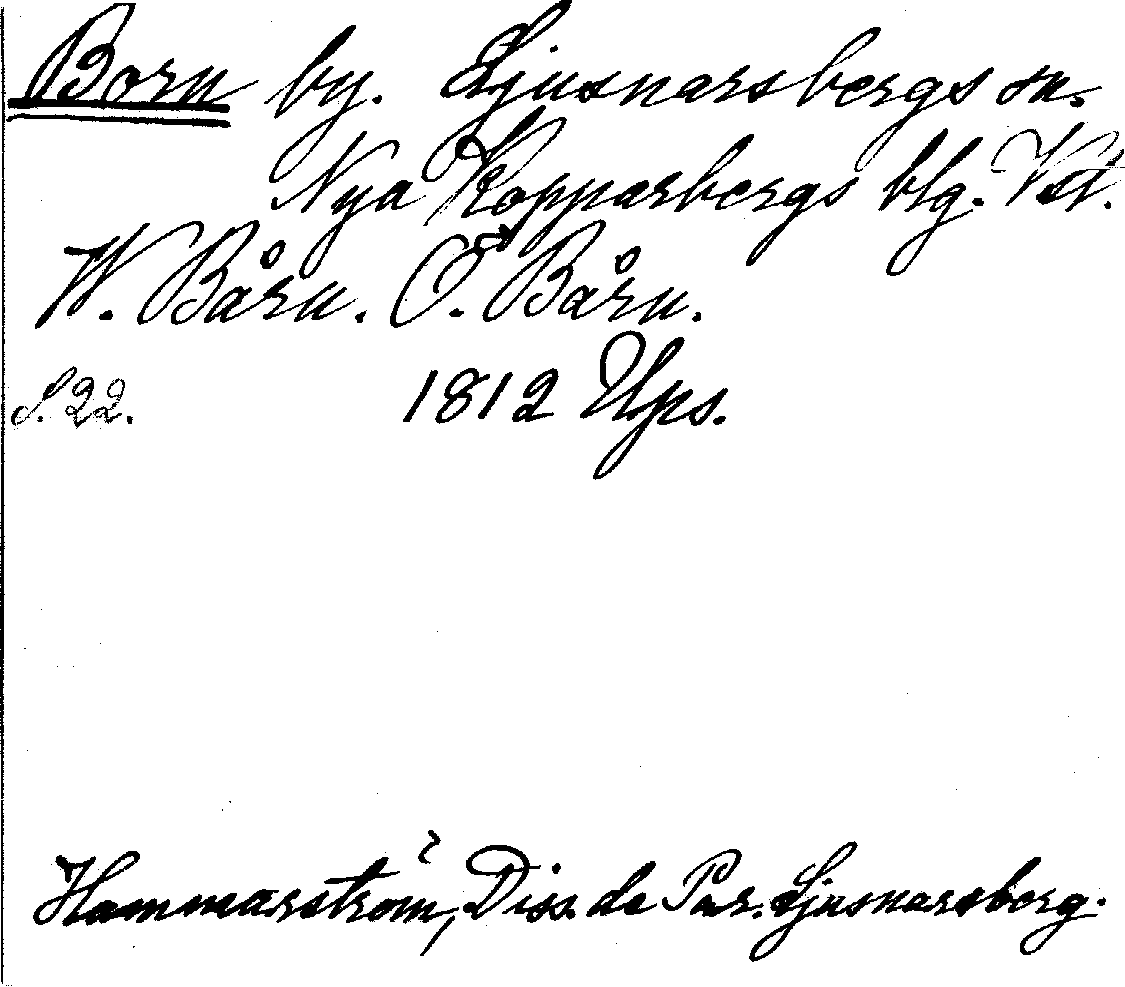 Born by. Ljusnarsbergs sn.
Nya Kopparbergs blg. Vst.
W. Bårn. Ö. Bårn.
S. 22. 1812 Ups.
Hammarström, Diss. de Par. Ljusnarsberg.